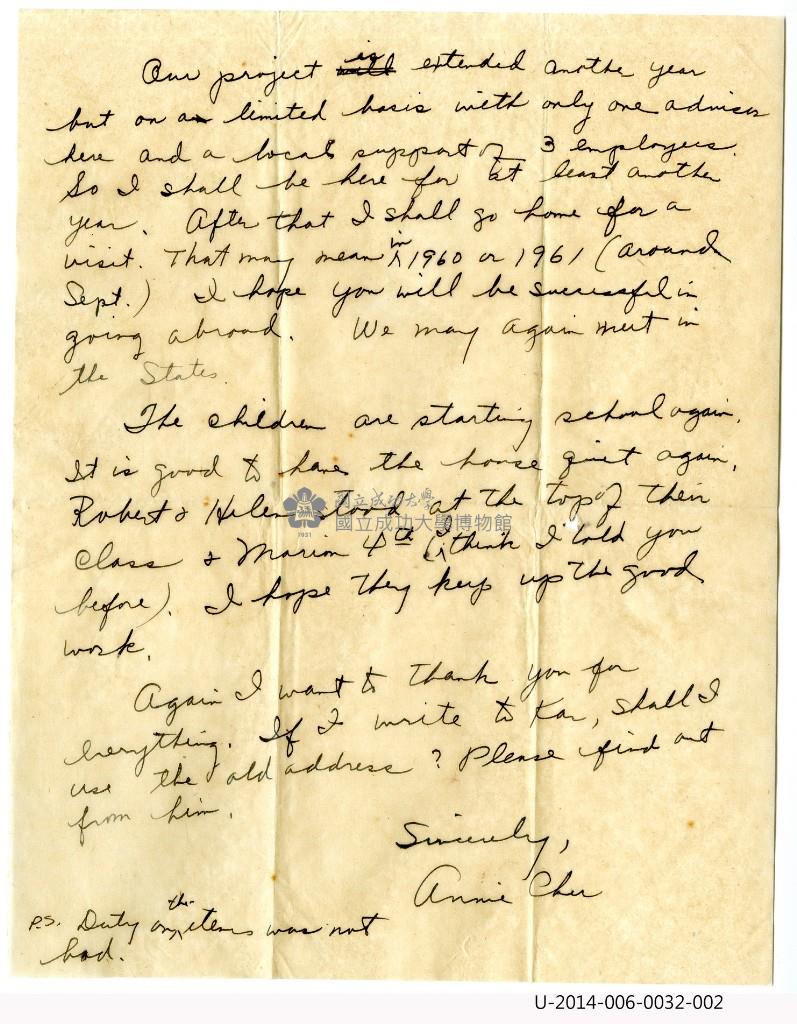 Our project is extended another year
but on a limited basis with only one advisor
here and a local support of 3 employees.
So I shall be here for at least another
year. After that I shall go home for a
visit. That may mean in 1960 or 1961 (around
Sept.) I hope you will be successful in
going abroad. We may again meet in
the States.
The children are starting school again.
It is good to have the house quiet again.
Robert & Helen stood at the top of their
class & Marion 4th (I think I told you
before). I hope they keep up the good
work.
Again I want to thank you for
everything. If I write to Kan, shall I
use the old address? Please find out
from him.
Sincerely,
Annie
P.S. Duty on the items was not
bad.
國立成功大學
國立成功大學博物館
1931
U-2014-006-0032-002